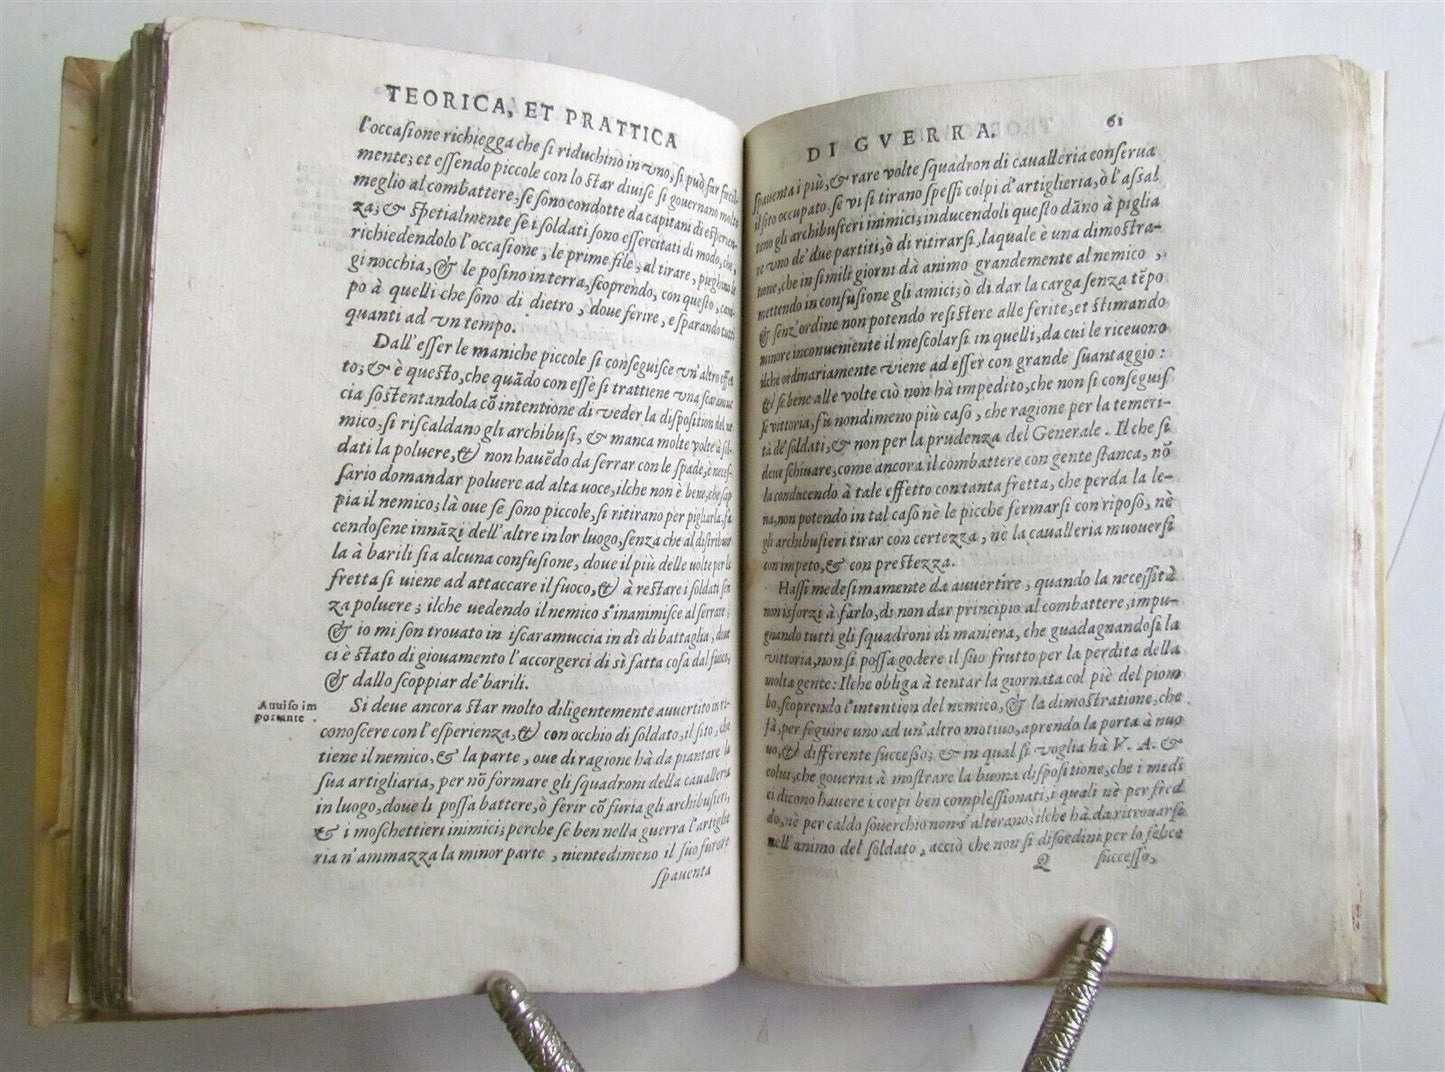 TEORICA, ET PRATTICA
l'occasione richiegga che si riduchino in vno, si può far facil-
mente; et essendo piccole con lo star diuise si gouernano molto
meglio al combattere; se sono condotte da capitani di esperien-
za; & spetialmente se i soldati sono essercitati di modo, che,
richiedendolo l'occasione, le prime file, al tirare, pieghino le
ginocchia, & le posino in terra, scoprendo, con questo, cam-
po à quelli che sono di dietro, doue ferire, e sparando tutti
quanti ad vn tempo.
Dall'esser le maniche piccole si conseguisce vn'altro effet
to; & è questo, che quādo con esse si trattiene vna scaramuc
cia sostentandola cō intentione di veder la disposition del ne
mico, si riscaldano gli archibusi, & manca molte volte à sol-
dati la poluere, & non hauēdo da serrar con le spade, è neces-
sario domandar poluere ad alta uoce, ilche non è bene, che sap
pia il nemico; là oue se sono piccole, si ritirano per pigliarla, fa
cendosene innāzi dell'altre in lor luogo, senza che al distribuir
la à barili sia alcuna confusione, doue il più delle uolte per la
fretta si uiene ad attaccare il fuoco, & à restare i soldati sen
za poluere; ilche uedendo il nemico s'inanimisce al serrare;
& io mi son trouato in iscaramuccia in dì di battaglia, doue
ci è stato di giouamento l'accorgerci di sì fatta cosa dal fuoco,
& dallo scoppiar de' barili.
Auuiso im
portante.
Si deue ancora star molto diligentemente auuertito in ri-
conoscere con l'esperienza, & con occhio di soldato, il sito, che
tiene il nemico, & la parte, oue di ragione hà da piantare la
sua artigliaria, per nō formare gli squadroni della cauallería
in luogo, doue li possa battere, ò ferir cō furia gli archibusieri,
& i moschettieri inimici; perche se ben nella guerra l'artiglie
ria n'ammazza la minor parte, nientedimeno il suo furore
spauenta
DI GVERRA. 61
spauenta i più, & rare volte squadron di cauallería conserua
il sito occupato. se vi si tirano spessi colpi d'artiglieria, ò l'assal
tano gli archibusieri inimici; inducendoli questo dāno à piglia
re vno de' due partiti, ò di ritirarsi, laquale è una dimostra-
tione, che in simili giorni dà animo grandemente al nemico,
mettendo in confusione gli amici; ò di dar la carga senza tēpo
& senz'ordine non potendo resistere alle ferite, et stimando
minore inconueniente il mescolarsi in quelli, da cui le riceuono
ilche ordinariamente viene ad esser con grande suantaggio:
& se bene alle volte ciò non hà impedito, che non si conseguis
se vittoria, fù nondimeno più caso, che ragione per la temeri-
tà de' soldati, & non per la prudenza del Generale. Il che si
deue schiuare, come ancora il combattere con gente stanca, nō
la conducendo à tale effetto con tanta fretta, che perda la le-
na, non potendo in tal caso nè le picche fermarsi con riposo, nè
gli archibusieri tirar con certezza, nè la caualleria muouersi
con impeto, & con prestezza.
Hassi medesimamente da auuertire, quando la necessità
non isforzi à farlo, di non dar principio al combattere, impu-
gnando tutti gli squadroni di maniera, che guadagnandosi la
vittoria, non si possa godere il suo frutto per la perdita della
molta gente: Ilche obliga à tentar la giornata col piè del piom
bo, scoprendo l'intention del nemico, & la dimostratione, che
fà, per seguire uno ad un'altro motiuo, aprendo la porta à nuo
uo, & differente successo; & in qual si voglia hà V. A. &
colui, che gouerna à mostrare la buona dispositione, che i medi
ci dicono hauere i corpi ben complessionati, i quali nè per fred
do, nè per caldo souerchio non s'alterano; ilche hà da ritrouarsi
nell'animo del soldato, acciò che non si disordini per lo felice
Q successo,